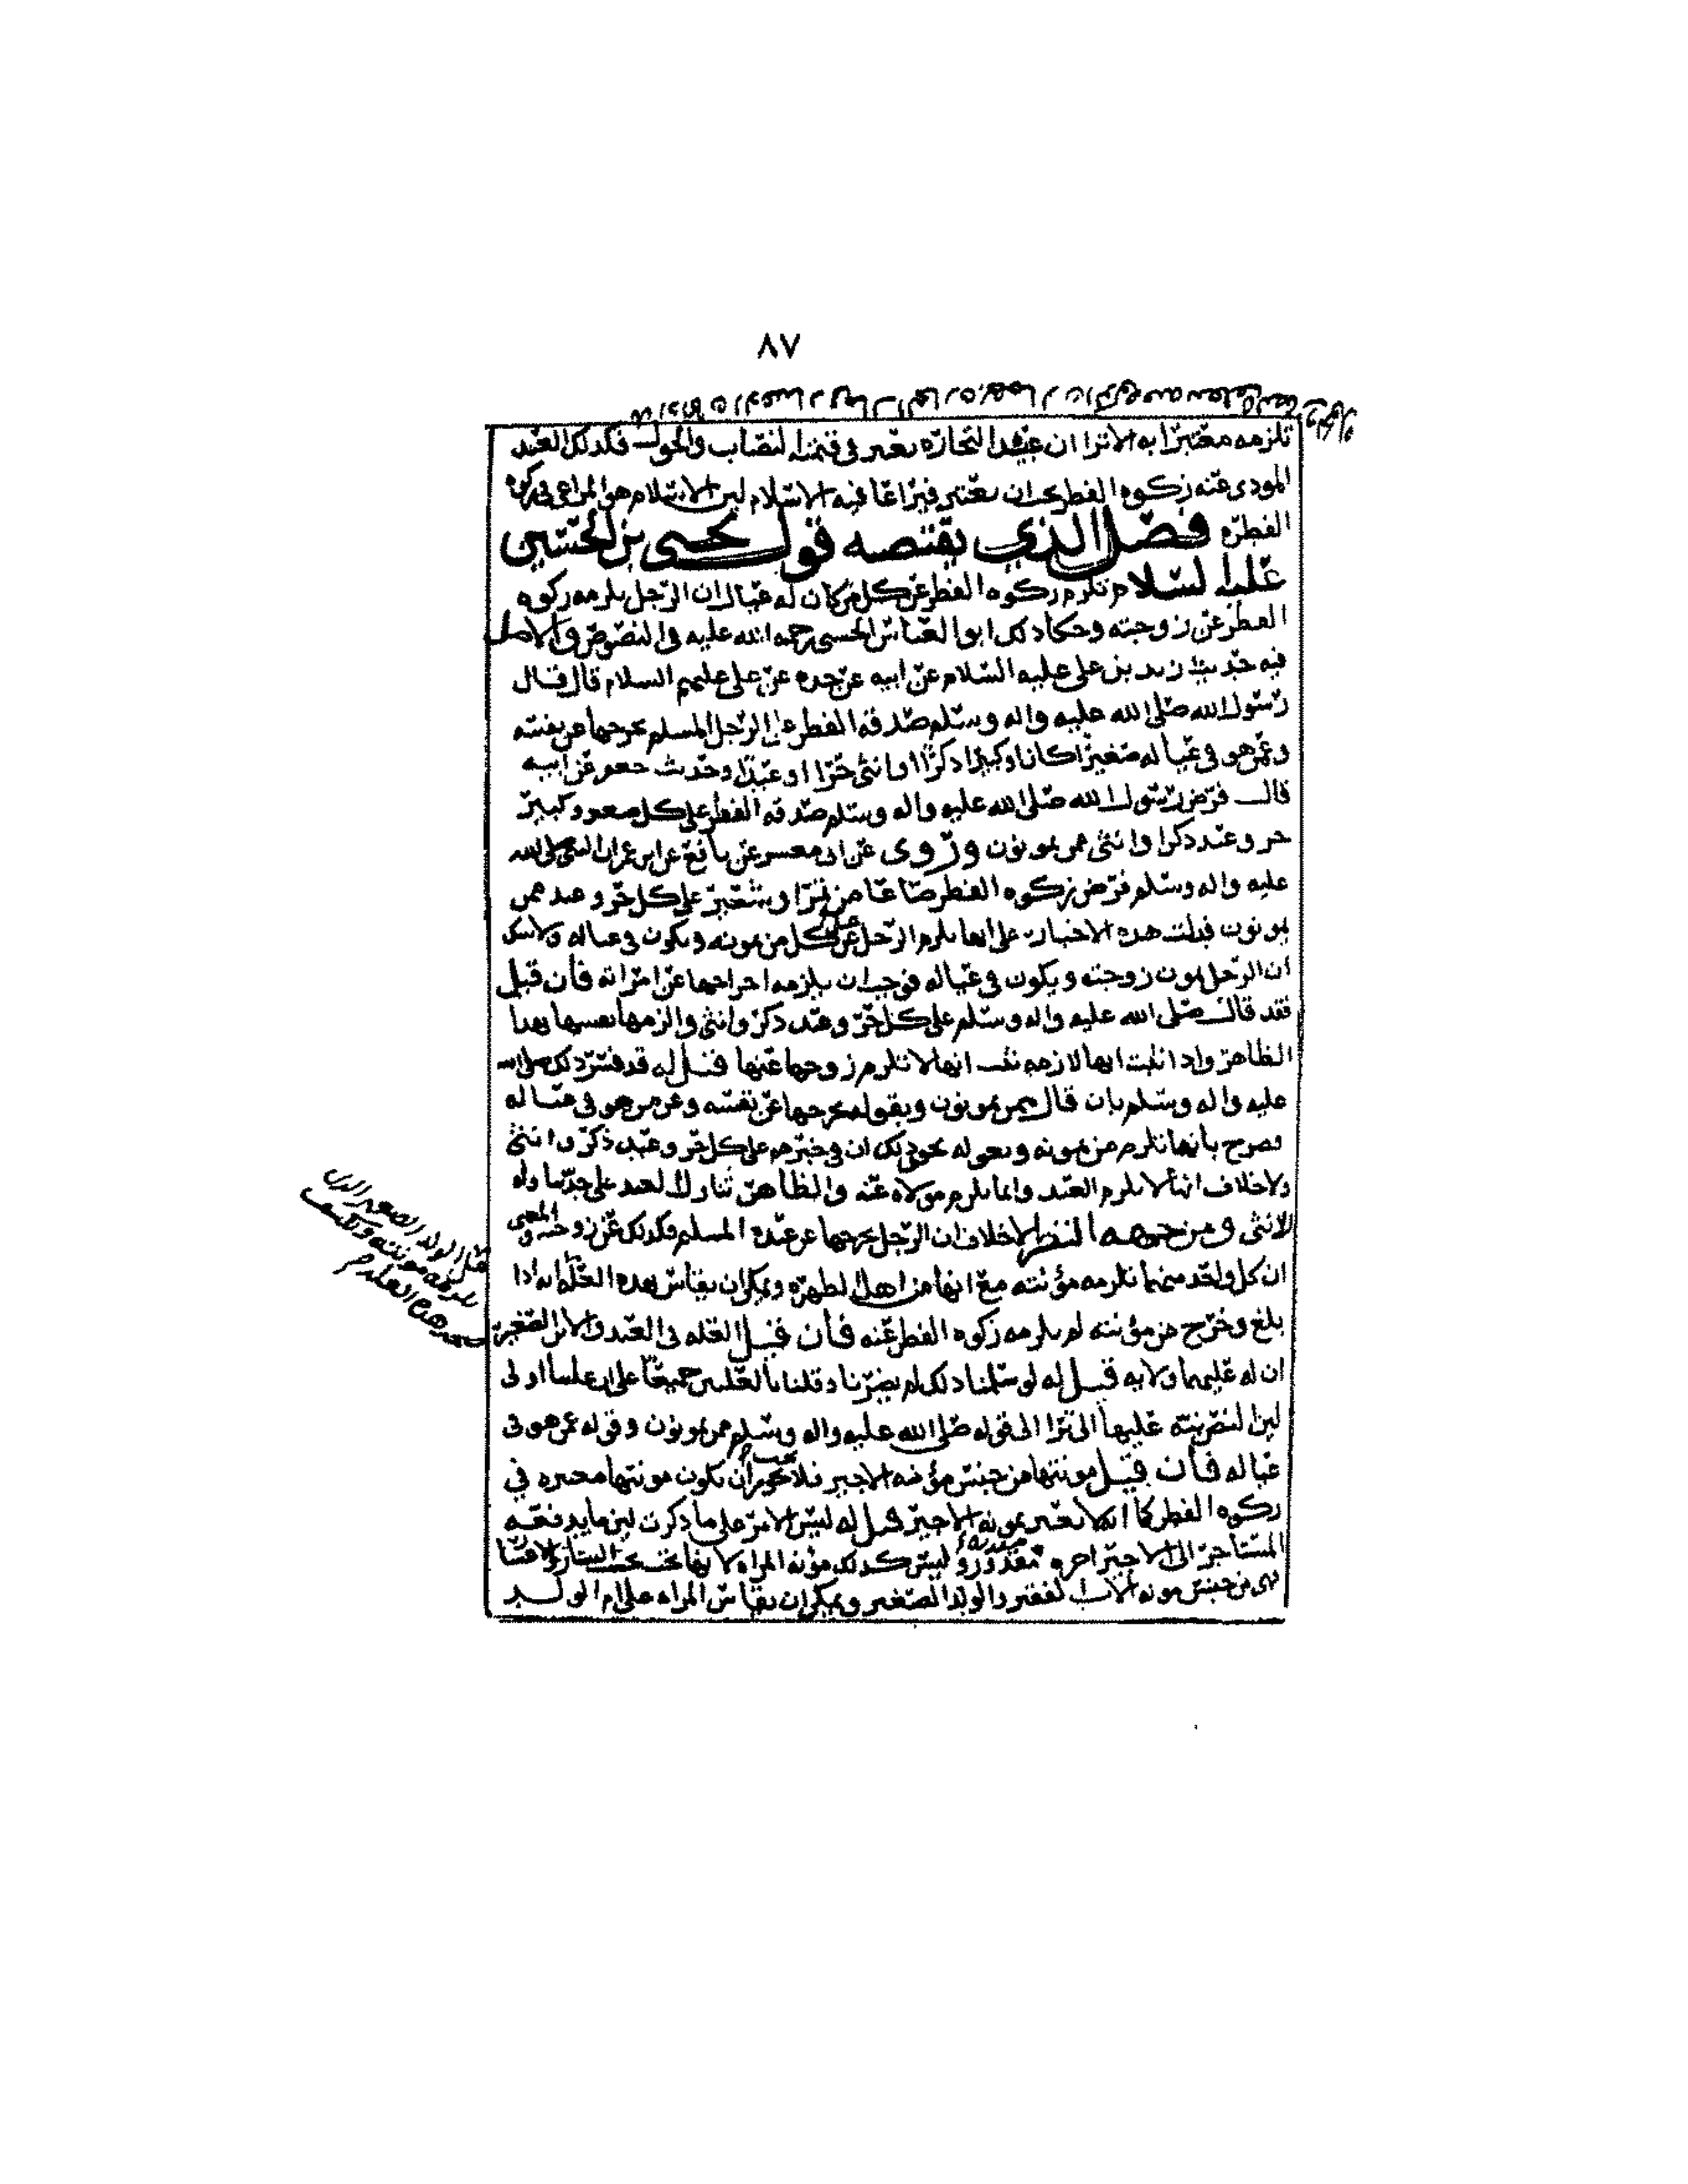 ٨٧
تلزمه معتبرا به الا ترا ان عبيد التجاره تعتبر في قيمته النصاب والحول فكذلك العبد
المودى عنه زكوه الفطر يجب ان يعتبر فيراعا فيه الاسلام لان الاسلام هو المراعى في زكوه
الفطره فصل الذي يقتضيه قول يحيى بن الحسين
عليه السلام تلزم زكوه الفطر عن كل من كان له عيال ان الرجل يلزمه زكوه
الفطر عن زوجته وحكا ذلك ابو العباس الحسني رحمه الله عليه في النصوص والاصل
فيه حديث زيد بن علي عليه السلام عن ابيه عن جده عن علي عليهم السلام قال قال
رسول الله صلى الله عليه واله وسلم صدقه الفطر على الرجل المسلم يخرجها عن نفسه
وعمن هو في عياله صغيرا كان او كبيرا ذكرا او انثى حرا او عبدا وحديث جعفر عن ابيه
قال فرض رسول الله صلى الله عليه واله وسلم صدقه الفطر على كل صغير وكبير
حر وعبد ذكرا وانثى ممن يمونون وروى عن ابي معسر عن نافع عن ابن عمر ان النبي صلى الله
عليه واله وسلم فرض زكوه الفطر صاعا من تمر او شعير على كل حر وعبد ممن
يمونون فدلت هذه الاخبار على انها تلزم الرجل عن كل من يمونه ويكون في عياله ولا شك
ان الرجل يمون زوجته ويكون في عياله فوجب ان يلزمه اخراجها عن امراته فان قيل
فقد قال صلى الله عليه واله وسلم على كل حر وعبد ذكر وانثى والزمها نفسها بهذا
الظاهر واذا ثبت انها لازمه ثبت انها لا تلزم زوجها عنها قيل له قد فسر ذلك صلى الله
عليه واله وسلم بان قال ممن يمونون وبقوله يخرجها عن نفسه وعن من هو في عياله
فصرح بانها تلزم من يمونه وبقوله نحو ذلك ان في خبرهم على كل حر وعبد ذكر وانثى
ولا خلاف انها لا تلزم العبد وانما تلزم مولاه عنه والظاهر تناول العبد على حد تناوله
الانثى ومن جهه النظر لا خلاف ان الرجل يخرجها عن عبده المسلم فكذلك عن زوجته والمعنى
ان كل واحد منهما تلزمه مؤنته مع انها من اهل الطهره ويمكن ان يقاس بهذه العله انه اذا
بلغ وخرج من مؤنته لم يلزمه زكوه الفطر عنه فان قيل العله في العبد والابن الصغير
ان له عليهما ولايه قيل له لو سلمنا ذلك لم يضرنا وقلنا بالعلتين جميعا على ان علتنا اولى
لان النص نبه عليها الى ترا الى قوله صلى الله عليه واله وسلم ممن يمونون وقوله عمن هو في
عياله فان قيل مونتها من جنس مؤنه الاجير فلا يجب ان تكون مونتها معتبره في
زكوه الفطر كما انه لا يعتبر بمونه الاجير قيل له ليس الامر على ما ذكرت لان ما يدفعه
المستاجر الى الاجير اجره مقدور وليس كذلك مؤنه المراه لانها تختلف بحسب اليسار والاعسار
فهي من جنس مونه الاب الفقير والولد الصغير ويمكن ان تقاس المراه على ام الولد